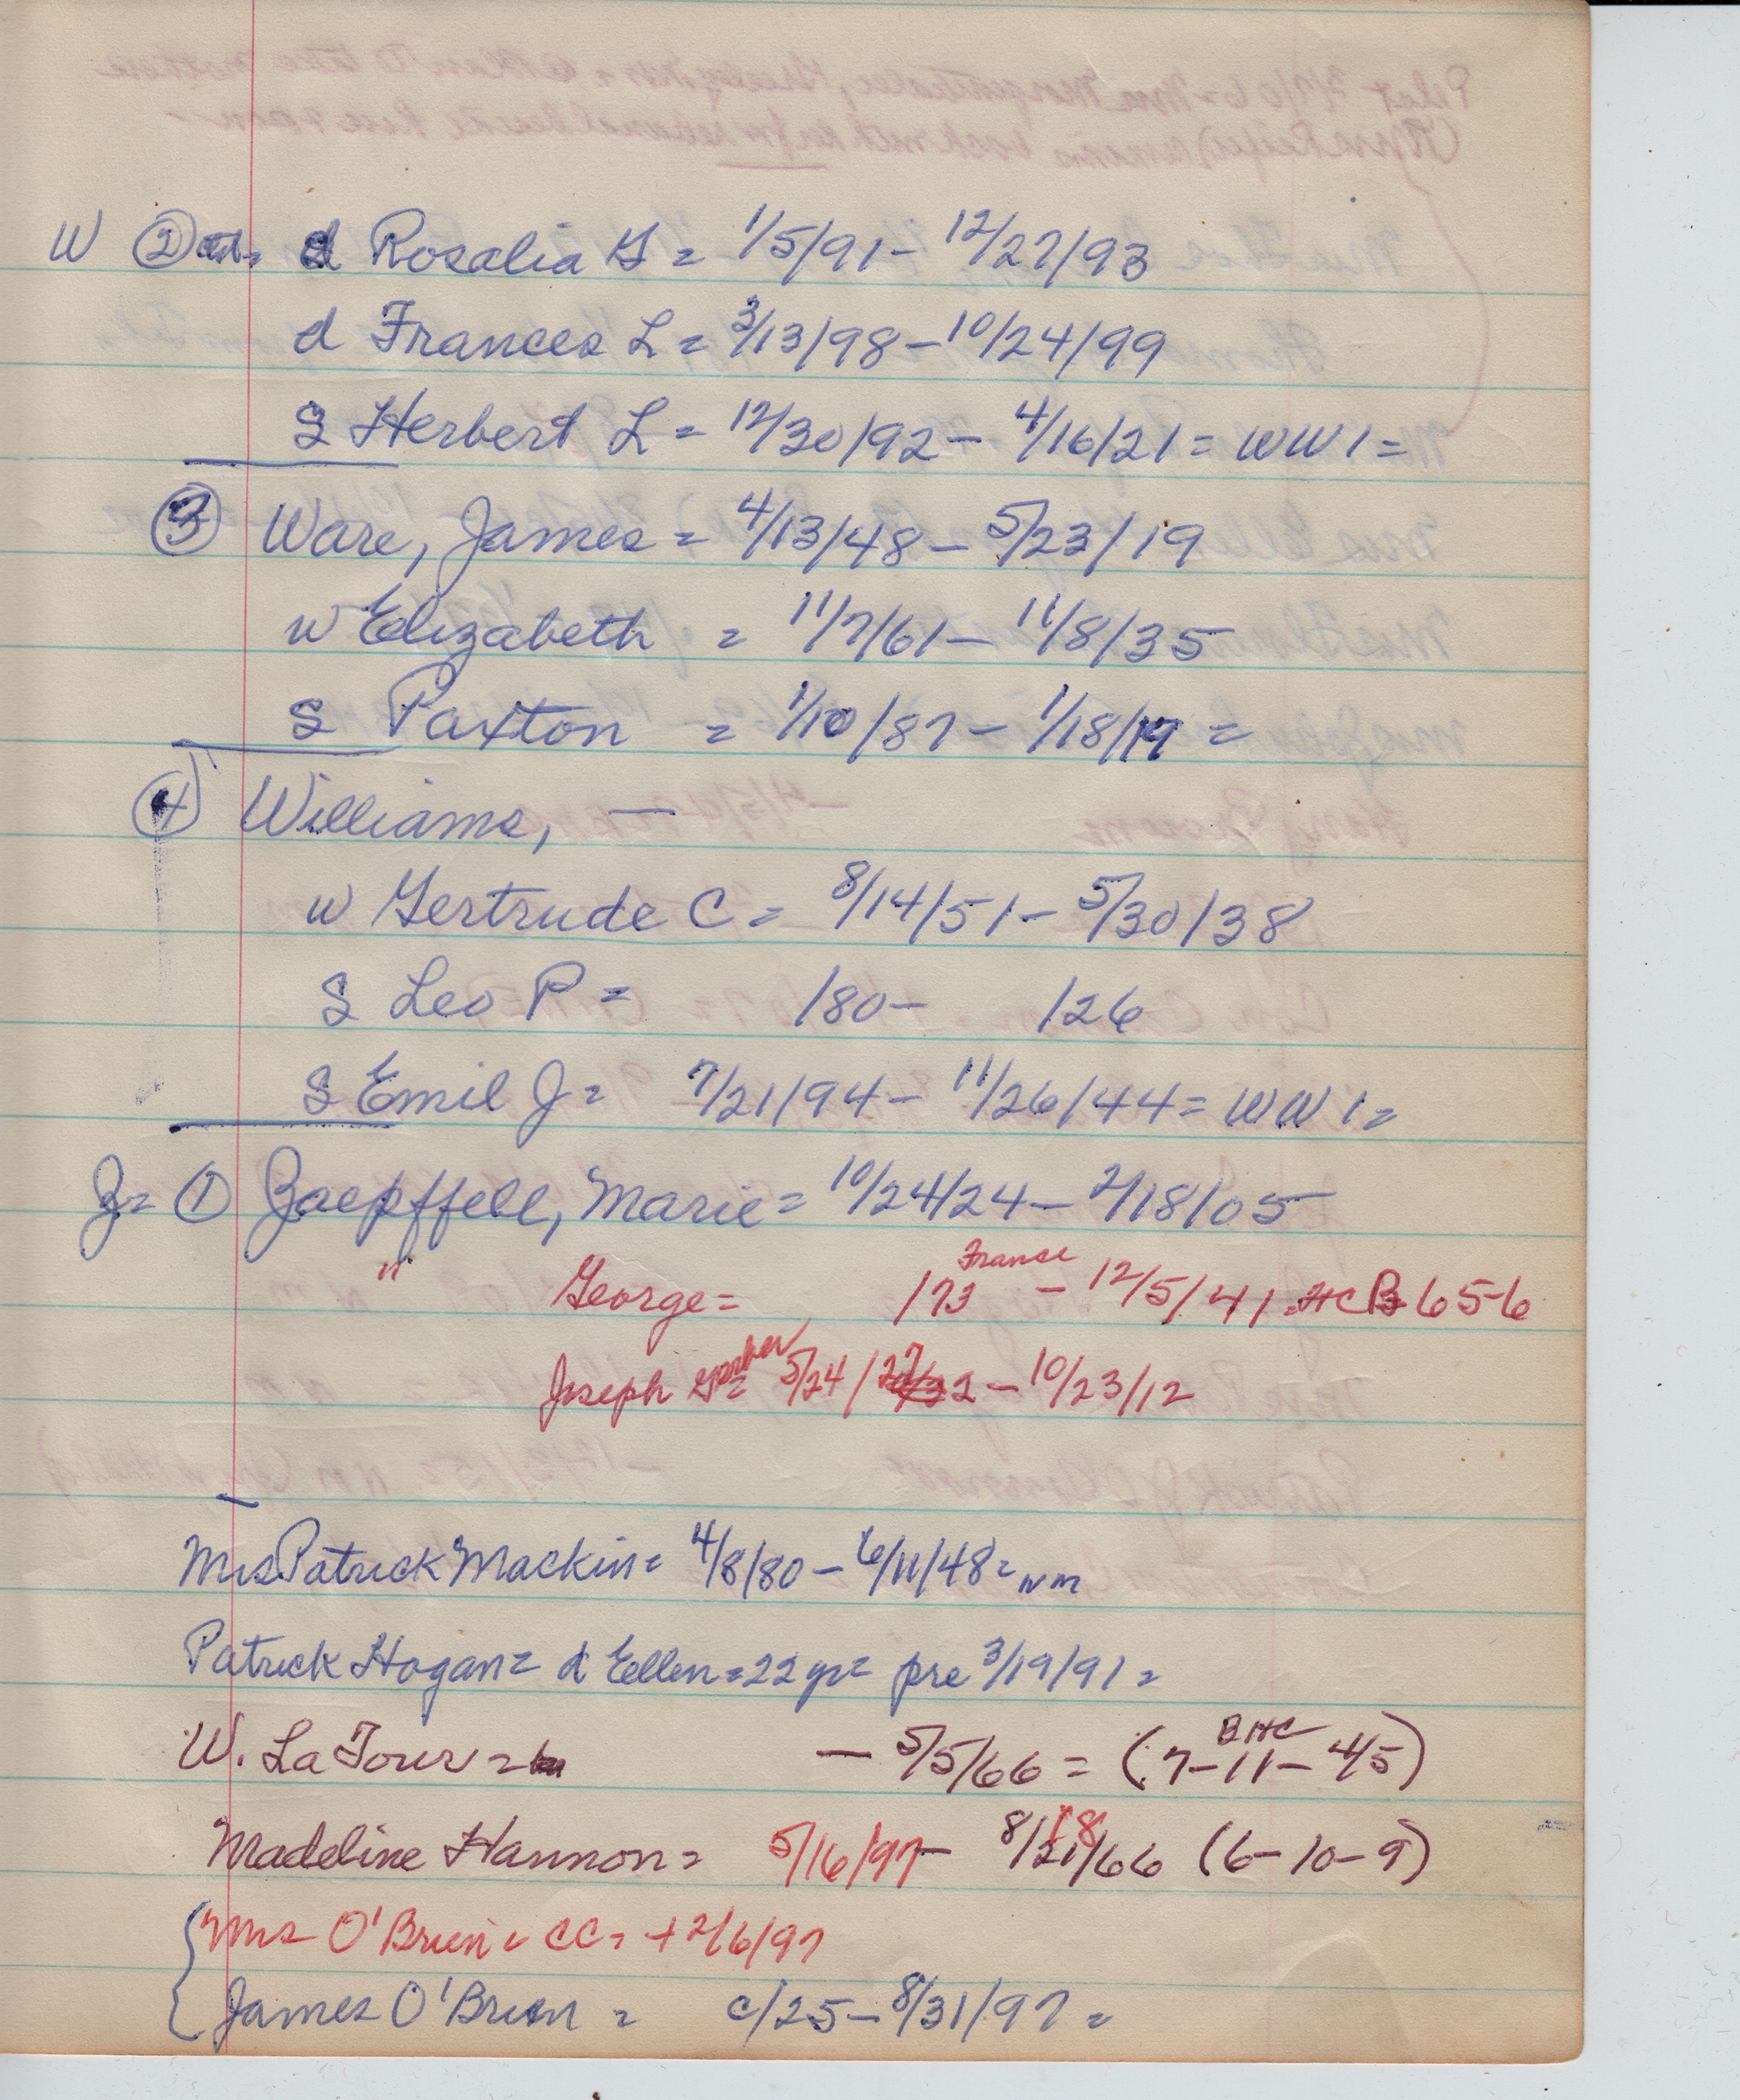 W ② d Rosalia G = 1/5/91 - 12/27/93
d Frances L = 3/13/98 - 10/24/99
S Herbert L = 12/30/92 - 4/16/21 = WW1 =
③ Ware, James = 4/13/48 - 5/23/19
w Elizabeth = 11/7/61 - 11/8/35
S Paxton = 1/10/87 - 1/18/19 =
④ Williams, —
w Gertrude C = 8/14/51 - 5/30/38
S Leo P = /80 - /26
S Emil J = 7/21/94 - 11/26/44 = WW1 =
Z = ① Zaepffell, Marie = 10/24/24 - 2/18/05
" George = /73 France - 12/5/41 = HCB 656
Joseph = 5/24/27 - 10/23/12
Mrs Patrick Mackin = 4/8/80 - 6/11/48 = NM
Patrick Hogan = d Ellen = 22 yr = pre 3/19/91 =
W. LaTour = — 5/5/66 = (7-11-4/5) BHC
Madeline Hannon = 5/16/97 - 8/18/66 (6-10-9)
Mrs O'Brien = CC = + 2/6/97
James O'Brien = c/25 - 8/31/97 =